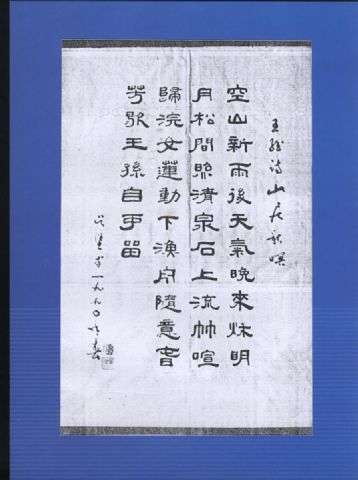 王維詩山居秋暝
空山新雨後天氣晚來秋明
月松間照清泉石上流竹喧
歸浣女蓮動下漁舟隨意春
芳歇王孫自可留
一九九〇年春